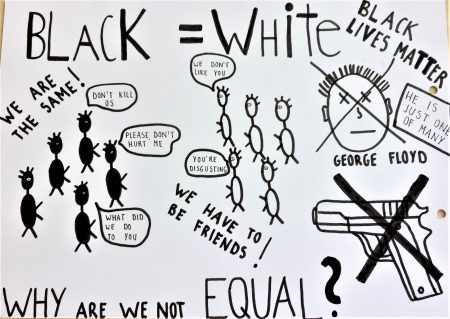 BLACK = WHite
BLACK
LIVES MATTER
WE ARE
THE SAME!
DON'T KILL
US
PLEASE DON'T
HURT ME
WHAT DID
WE DO
TO YOU
WE DON'T
LIKE YOU
YOU'RE
DISGUSTING
WE HAVE TO
BE FRIENDS!
HE IS
JUST ONE
OF MANY
GEORGE FLOYD
WHY ARE WE NOT EQUAL?